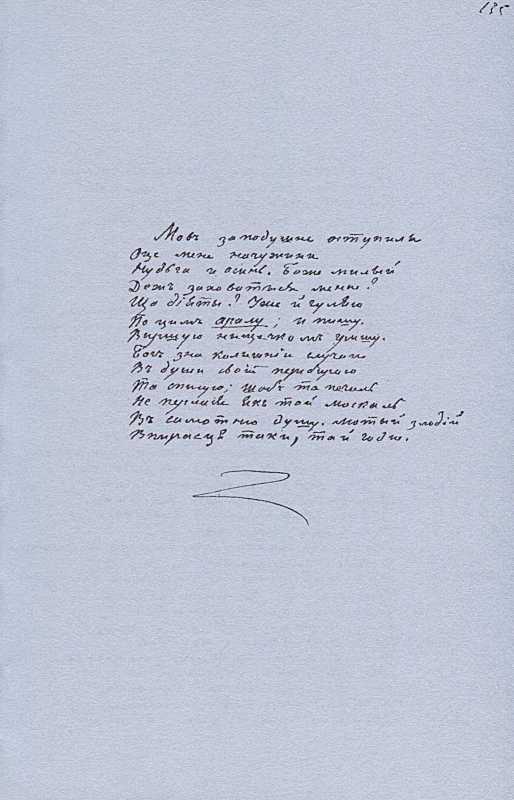 135
Мовъ заподушне оступили
Оце мене на чужини
Нудьга и осинь. Боже милый
Дежъ заховатыся мени?
Що діяты? Уже й гуляю
По цимъ аралу; и пишу.
Виршую нищечкомъ грішу.
Богъ зна колишніи случаи
Въ души своій перебираю
Та спысую; щобъ та печаль
Не перлася якъ той москаль
Въ самотню душу. Лютый злодій
Впирается таки, тай годи.